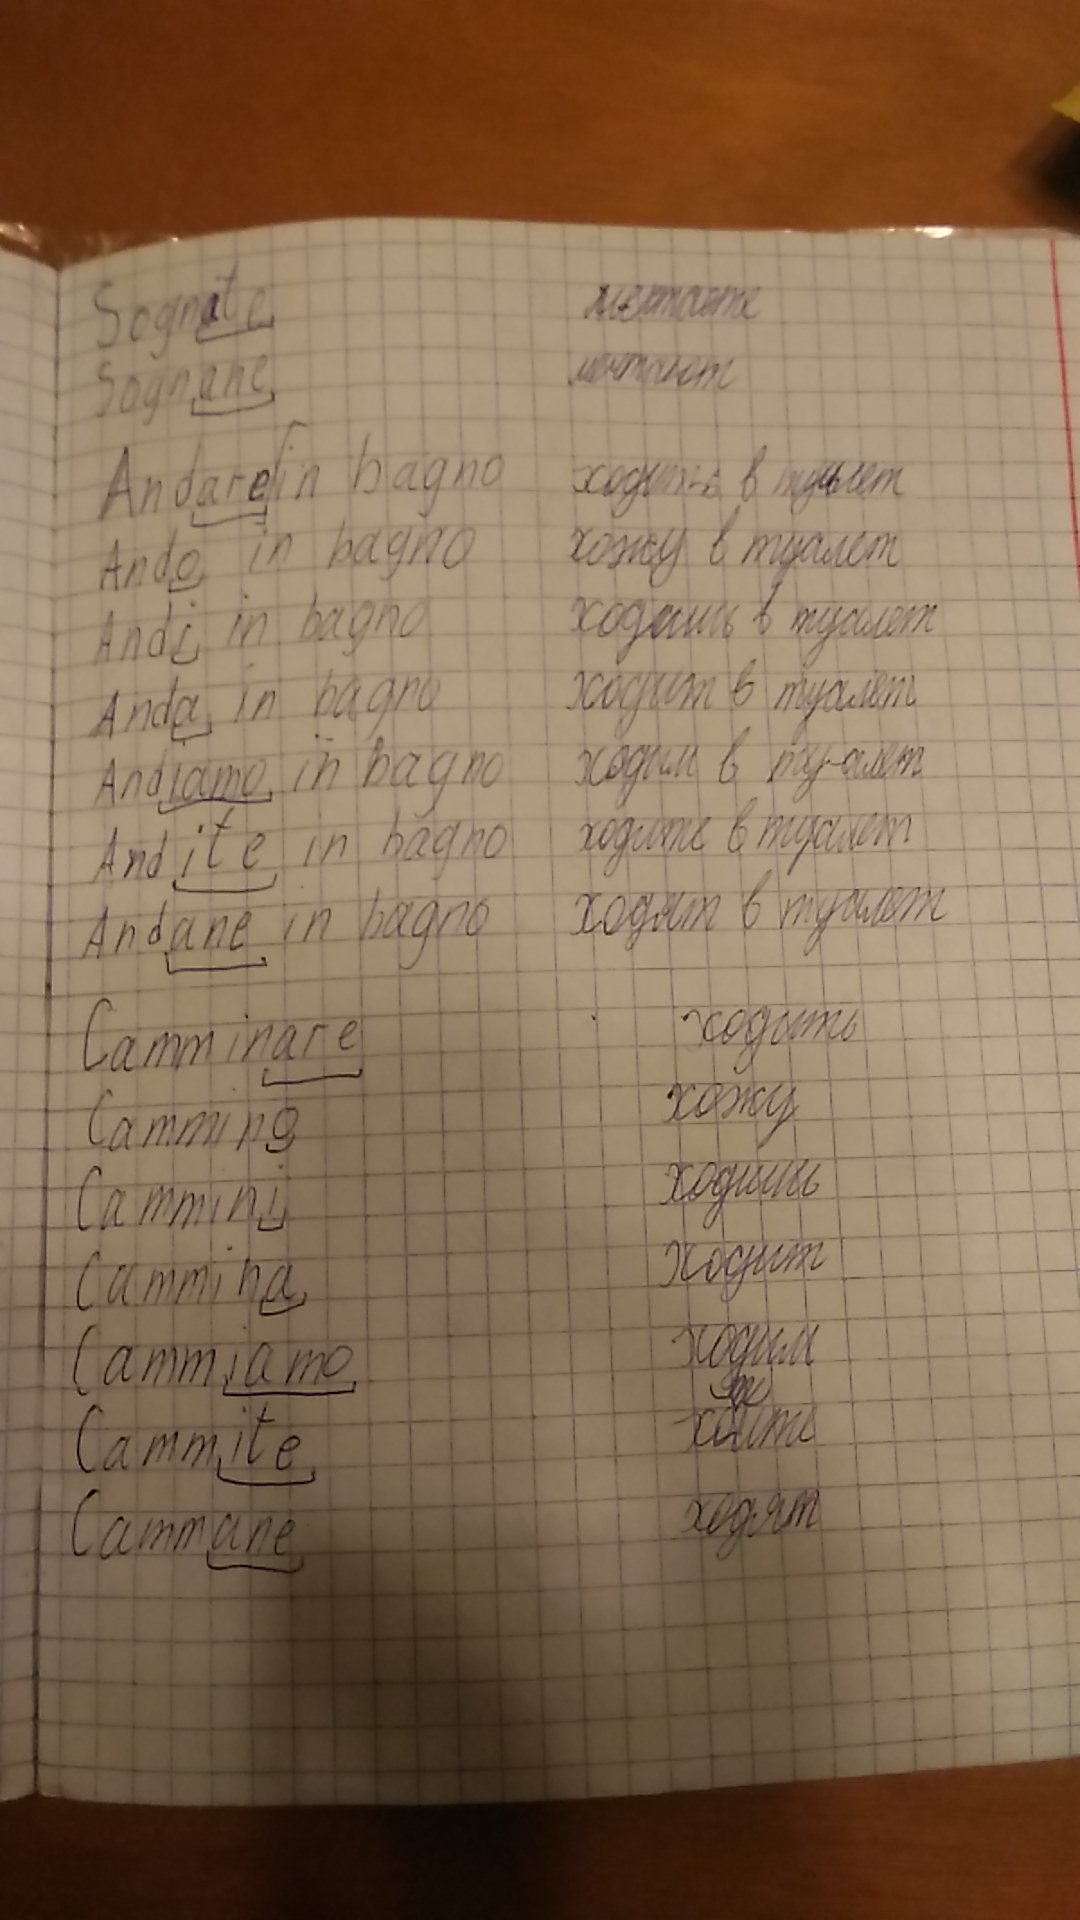 Sognate мечтаете
Sognane мечтают
Andare in bagno ходить в туалет
Ando in bagno хожу в туалет
Andi in bagno ходишь в туалет
Anda in bagno ходит в туалет
Andiamo in bagno ходим в туалет
Andite in bagno ходите в туалет
Andane in bagno ходят в туалет
Camminare ходить
Cammino хожу
Cammini ходишь
Cammina ходит
Cammiamo ходим
Cammite
Cammane ходят